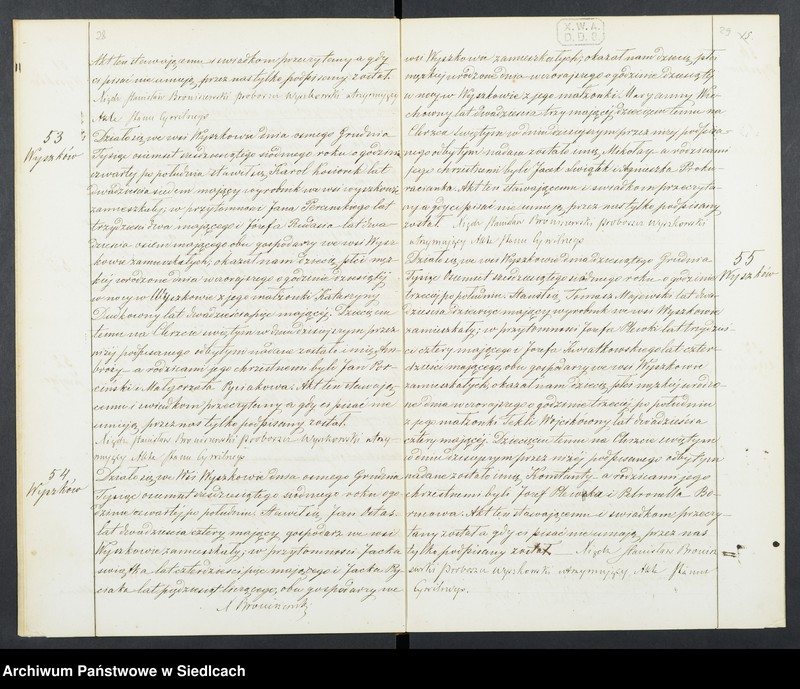 28
Akt ten stawającemu i świadkom przeczytany a gdy
ci pisać nie umieją, przez nas tylko podpisany został.
Xiądz Stanisław Broniszewski proboszcz Wyszkowski Utrzymujący
Akta Stanu Cywilnego
53
Wyszków
Działo się we wsi Wyszkowie dnia ósmego Grudnia
Tysiąc ośmset sześdziesiątego siódmego roku o godzinie
czwartej po południu stawił się, Karol Kosiorek lat
dwadzieścia siedem mający wyrobnik we wsi Wyszkowie
zamieszkały, w przytomności Jana lat
trzydzieści dwa mającego i Józefa lat dwa-
dzieścia ośm mającego obu gospodarzy we wsi Wysz-
kowie zamieszkałych, okazał nam dziecię płci męz-
kiej urodzone dnia wczorajszego o godzinie dziesiątej
w nocy w Wyszkowie z jego małżonki Katarzyny
lat dwadzieścia pięć mającej. Dziecięciu
temu na Chrzcie świętym w dniu dzisiejszym przez
niżej podpisanego odbytym nadane zostało imię Am-
broży a rodzicami jego chrzestnemi byli Jan Por-
ciński i Małgorzata Rysiakowa. Akt ten stawają-
cemu i świadkom przeczytany a gdy ci pisać nie
umieją, przez nas tylko podpisany został.
Xiądz Stanisław Broniszewski Proboszcz Wyszkowski Utrzy-
mujący Akta Stanu Cywilnego.
54
Wyszków
Działo się we Wsi Wyszkowie dnia ósmego Grudnia
Tysiąc ośmset sześdziesiątego siódmego roku o go-
dzinie czwartej po południu Stawił się, Jan Ostas
lat dwadzieścia cztery mający gospodarz we wsi
Wyszkowie zamieszkały, w przytomności Jacka
lat czterdzieści pięć mającego i Jacka Ry-
siaka lat pięćdziesiąt liczącego, obu gospodarzy we
X Broniszewski
X.W.A.
D.D.S.
29 15
wsi Wyszkowie zamieszkałych, okazał nam dziecię płci
męzkiej urodzone dnia wczorajszego o godzinie dziesiątej
w nocy w Wyszkowie z jego małżonki Maryanny
lat dwadzieścia trzy mającej dziecięciu temu na
Chrzcie świętym w dniu dzisiejszym przez niżej podpisa-
nego odbytym nadane zostało imię Mikołaj a rodzicami
jego chrzestnemi byli Jacek i Agnieszka
Akt ten stawającemu i świadkom przeczyta-
ny a gdy ci pisać nie umieją, przez nas tylko podpisany
został. Xiądz Stanisław Broniszewski Proboszcz Wyszkowski
Utrzymujący Akta Stanu Cywilnego
55
Wyszków
Działo się we wsi Wyszkowie dnia dziesiątego Grudnia
Tysiąc Ośmset sześdziesiątego siódmego roku o godzinie
trzeciej po południu. Stawił się, Tomasz Majewski lat dwa-
dzieścia dziewięć mający wyrobnik we wsi Wyszkowie
zamieszkały; w przytomności Józefa lat trzydzie-
ści cztery mającego i Józefa Kwiatkowskiego lat czter-
dzieści mającego, obu gospodarzy we wsi Wyszkowie
zamieszkałych, okazał nam dziecię płci męzkiej urodzo-
ne dnia wczorajszego o godzinie trzeciej po południu
z jego małżonki Tekli Wójcikówny lat dwadzieścia
cztery mającej. Dziecięciu temu na Chrzcie świętym
w dniu dzisiejszym przez niżej podpisanego odbytym
nadane zostało imię, Konstanty a rodzicami jego
chrzestnemi byli Józef i Petronella
Akt ten stawającemu i świadkom przeczy-
tany został a gdy ci pisać nie umieją, przez nas
tylko podpisany został Xiądz Stanisław Bronis-
zewski Proboszcz Wyszkowski Utrzymujący Akta Stanu
Cywilnego.
Archiwum Państwowe w Siedlcach